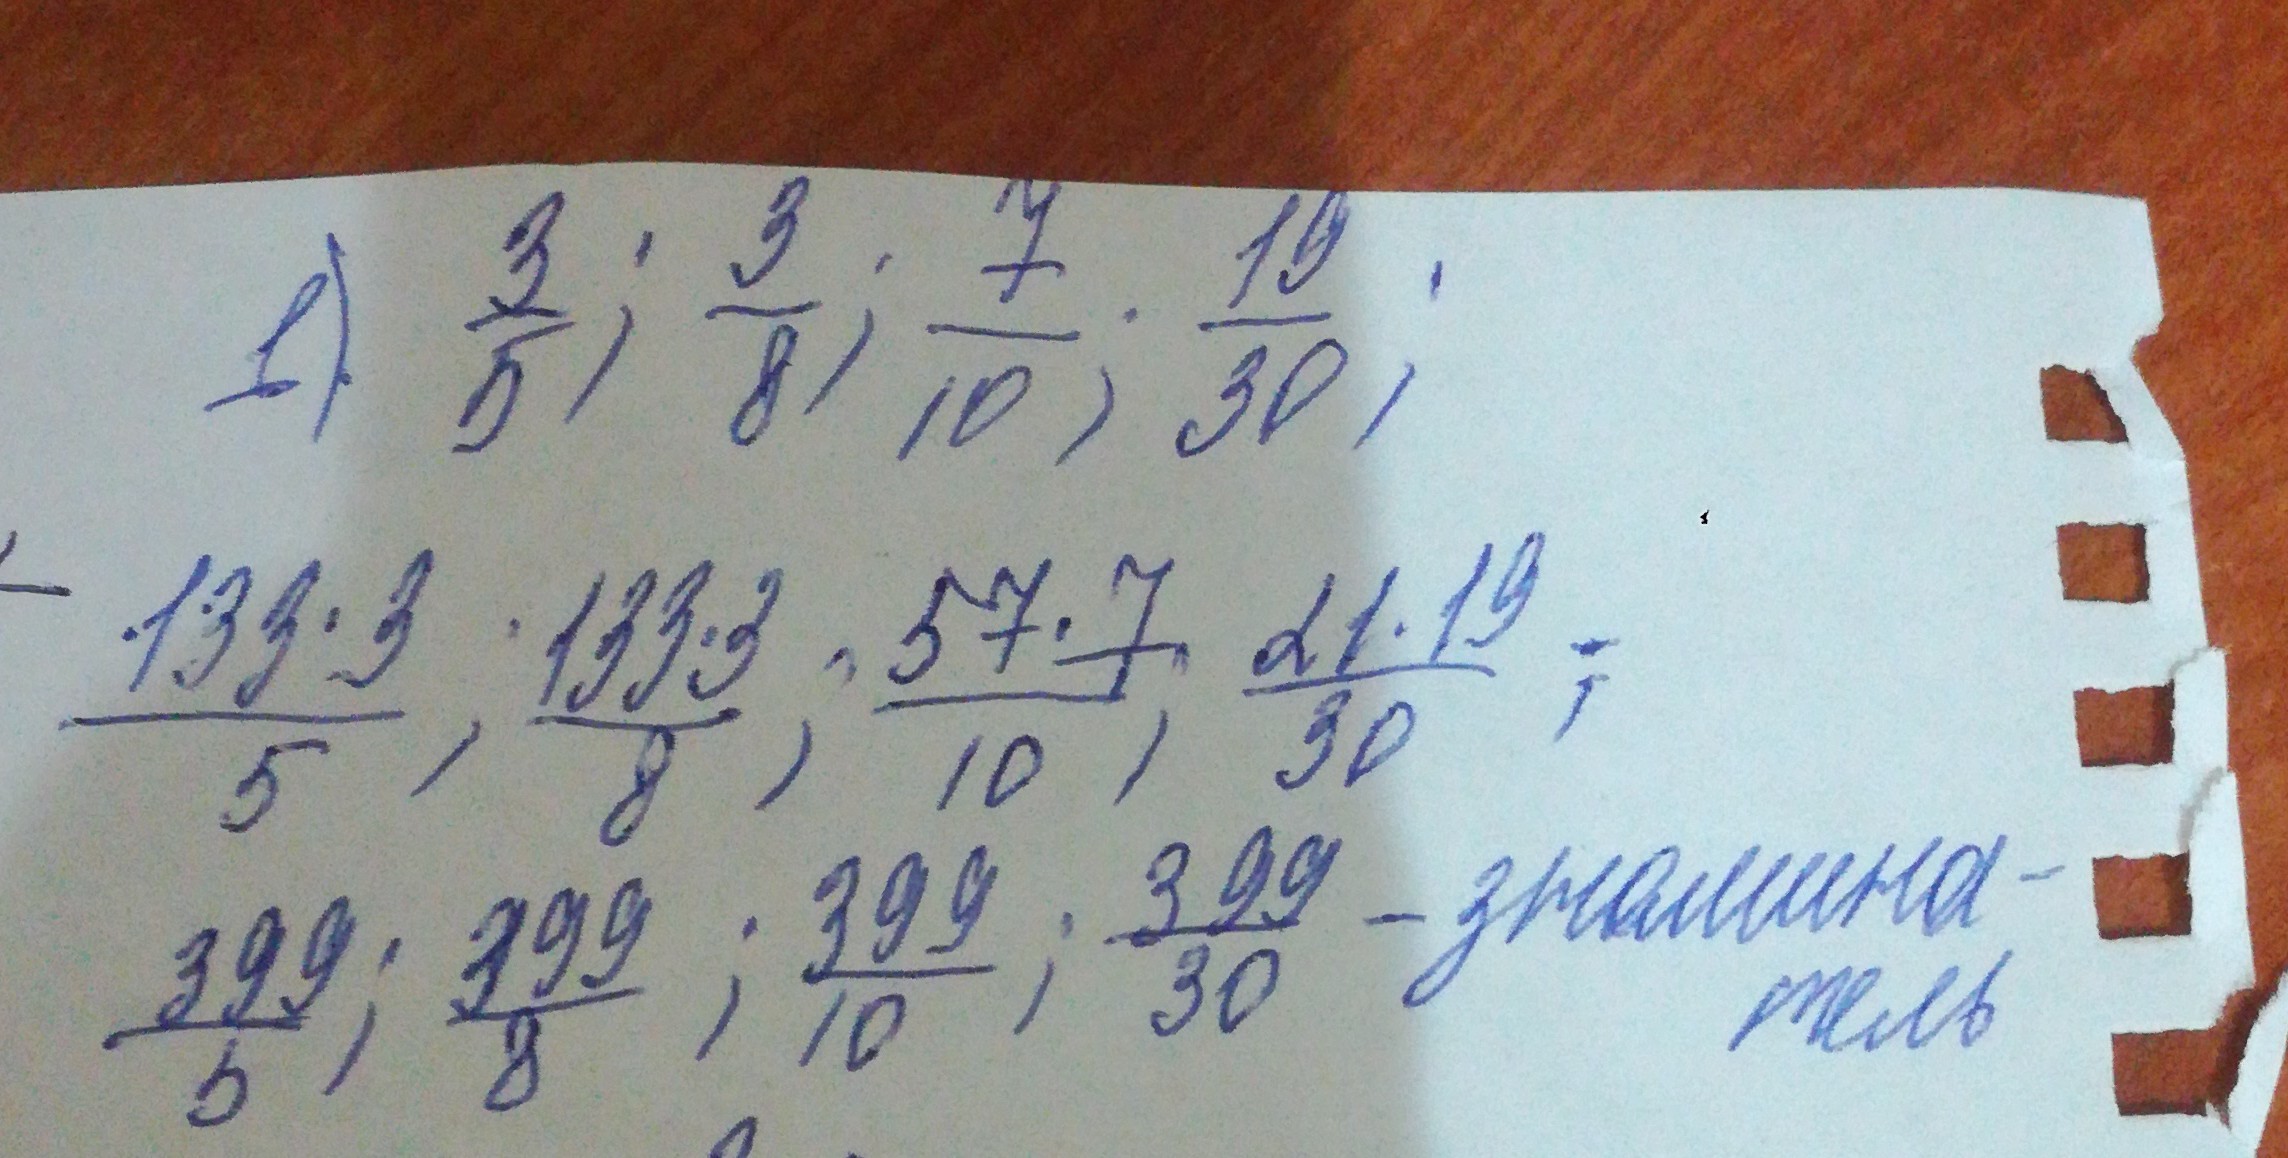 1) 3/5; 3/8; 7/10; 19/30;
133·3/5; 133·3/8; 57·7/10; 21·19/30;
399/5; 399/8; 399/10; 399/30 - знамина-
тель